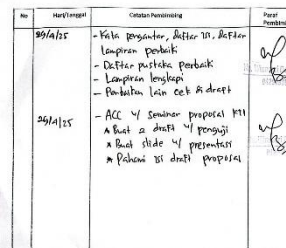 No Hari/Tanggal Catatan Pembimbing Paraf Pembimbing
24/4/25 - Kata pengantar, Daftar isi, Daftar
lampiran perbaiki
- Daftar pustaka perbaiki
- Lampiran lengkapi
- Perbaikan lain cek di draft
25/4/25 - ACC u/ seminar proposal KTI
* Buat 2 draft u/ penguji
* Buat slide u/ presentasi
* Pahami isi draft proposal